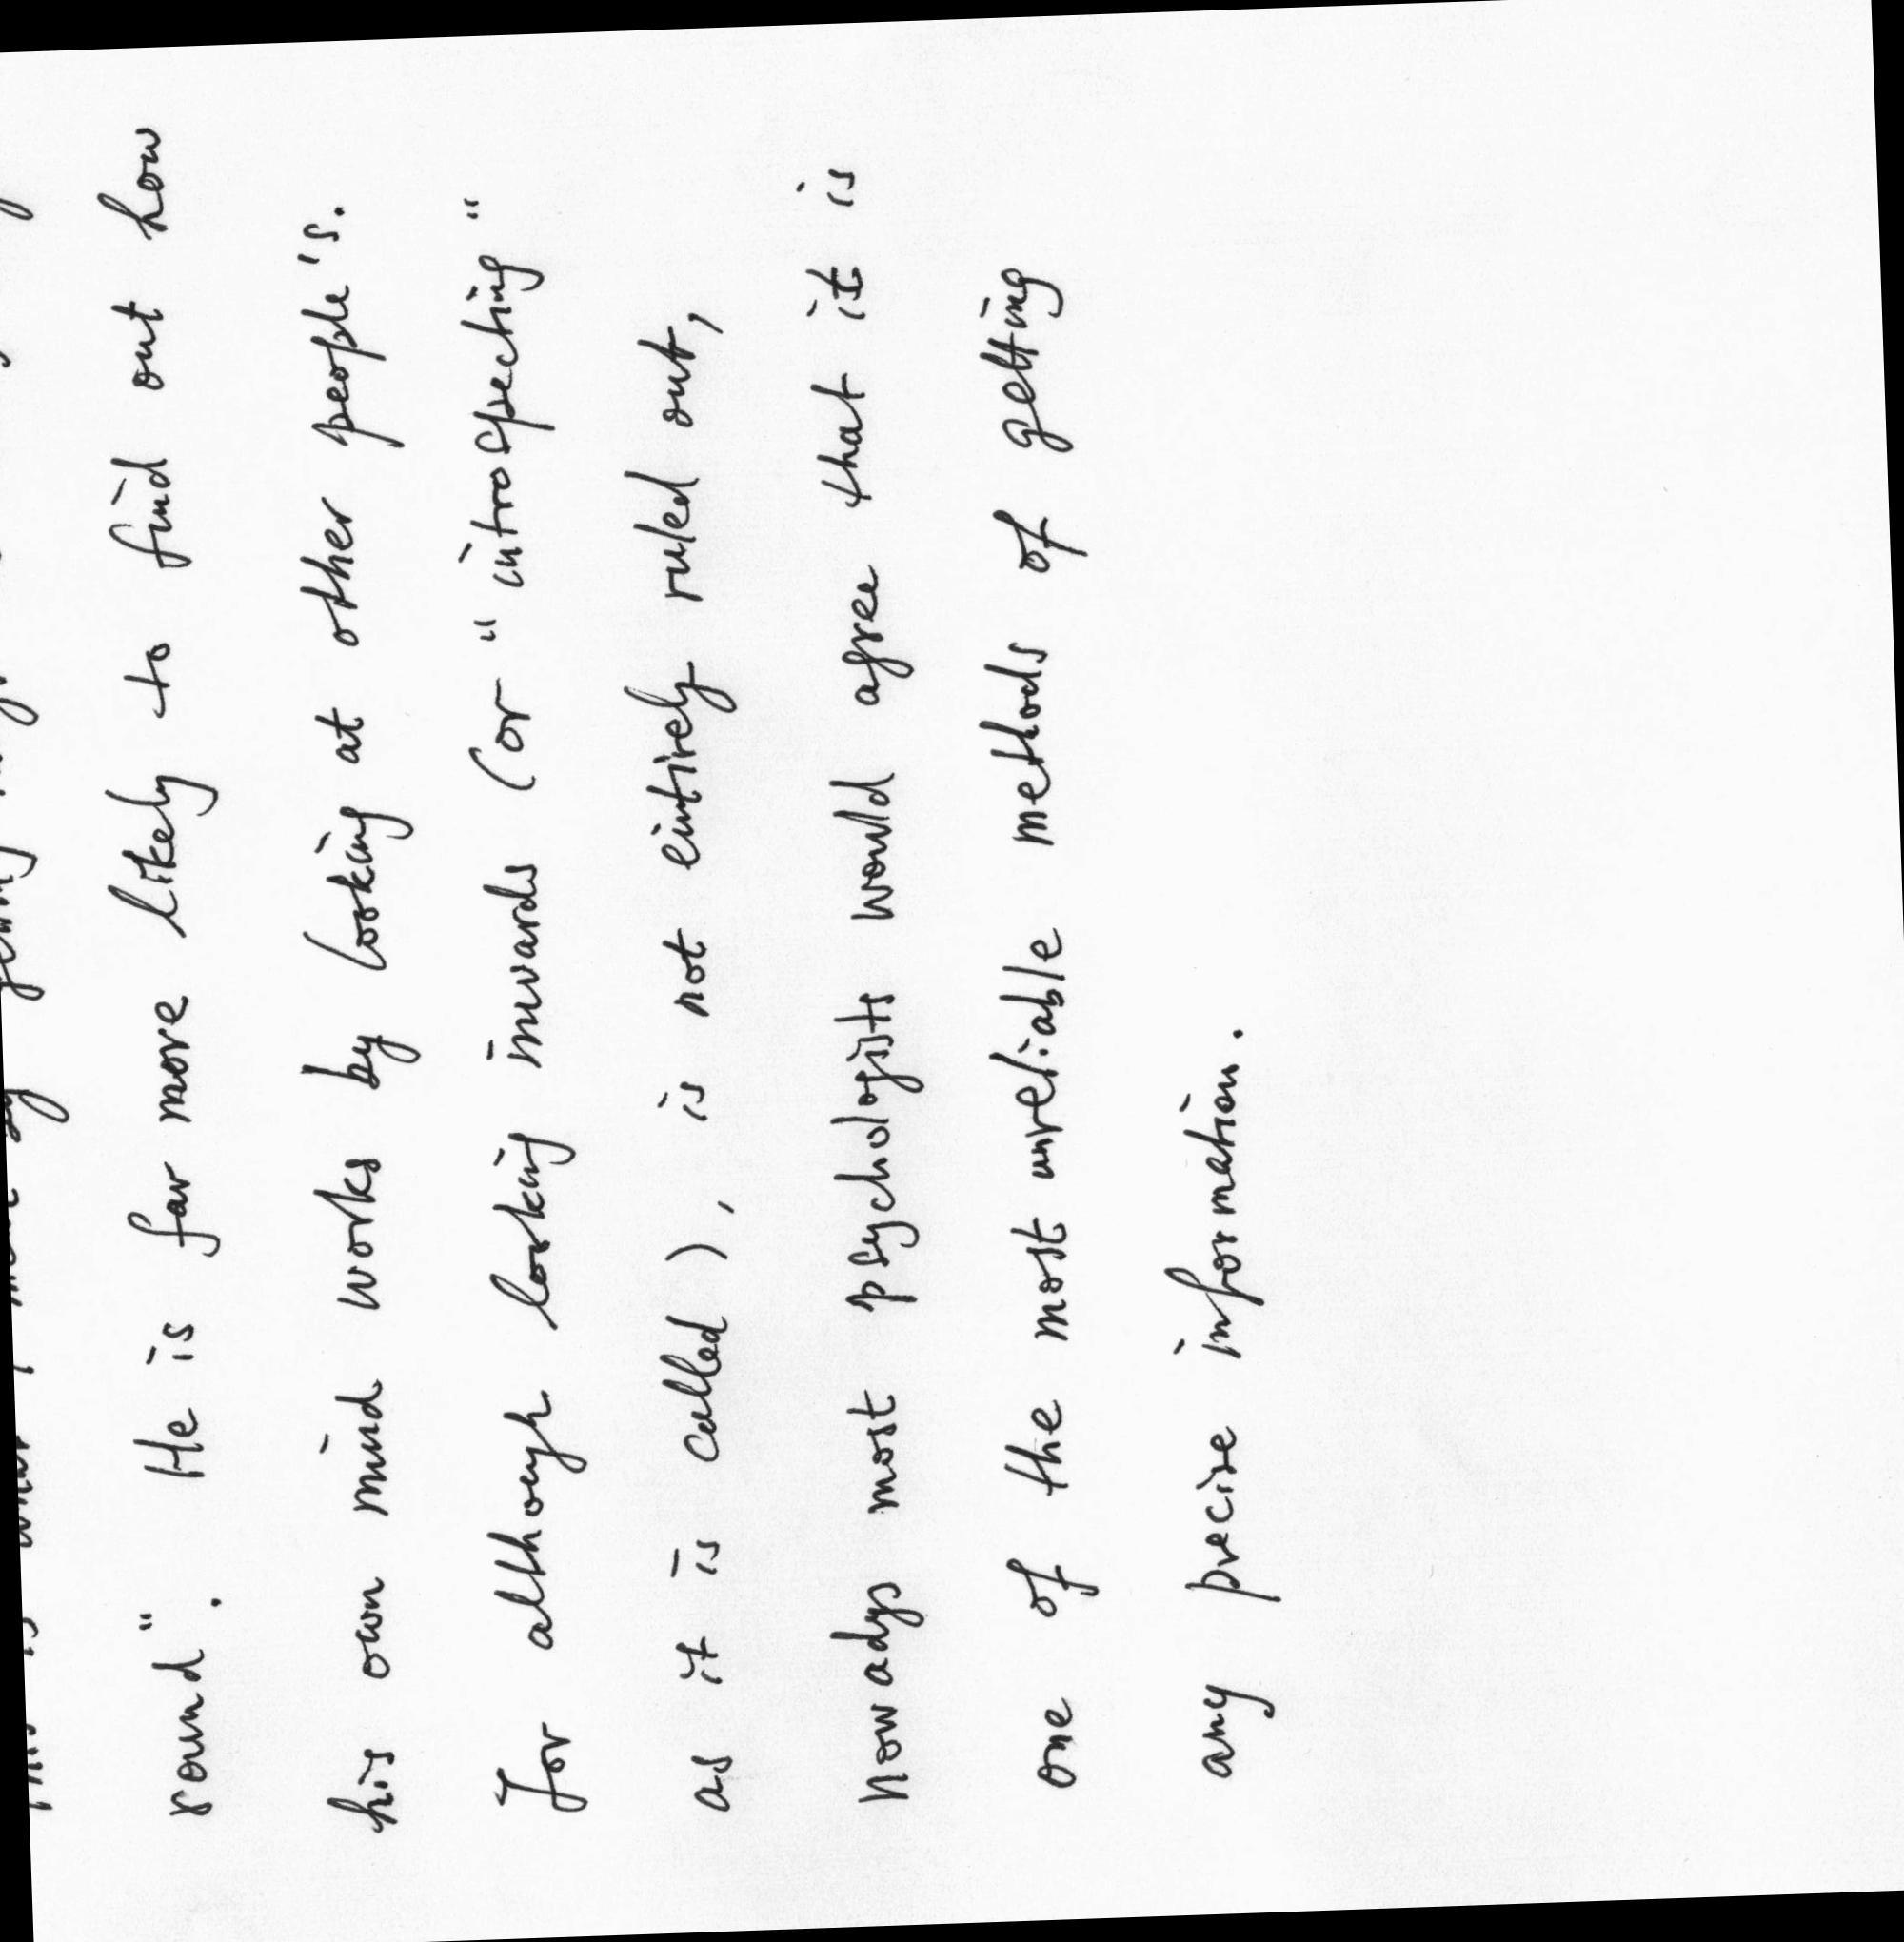 round". He is far more likely to find out how
his own mind works by looking at other people's.
For although looking inwards (or "introspecting"
as it is called), is not entirely ruled out,
nowadys most psychologists would agree that it is
one of the most unreliable methods of getting
any precise information.